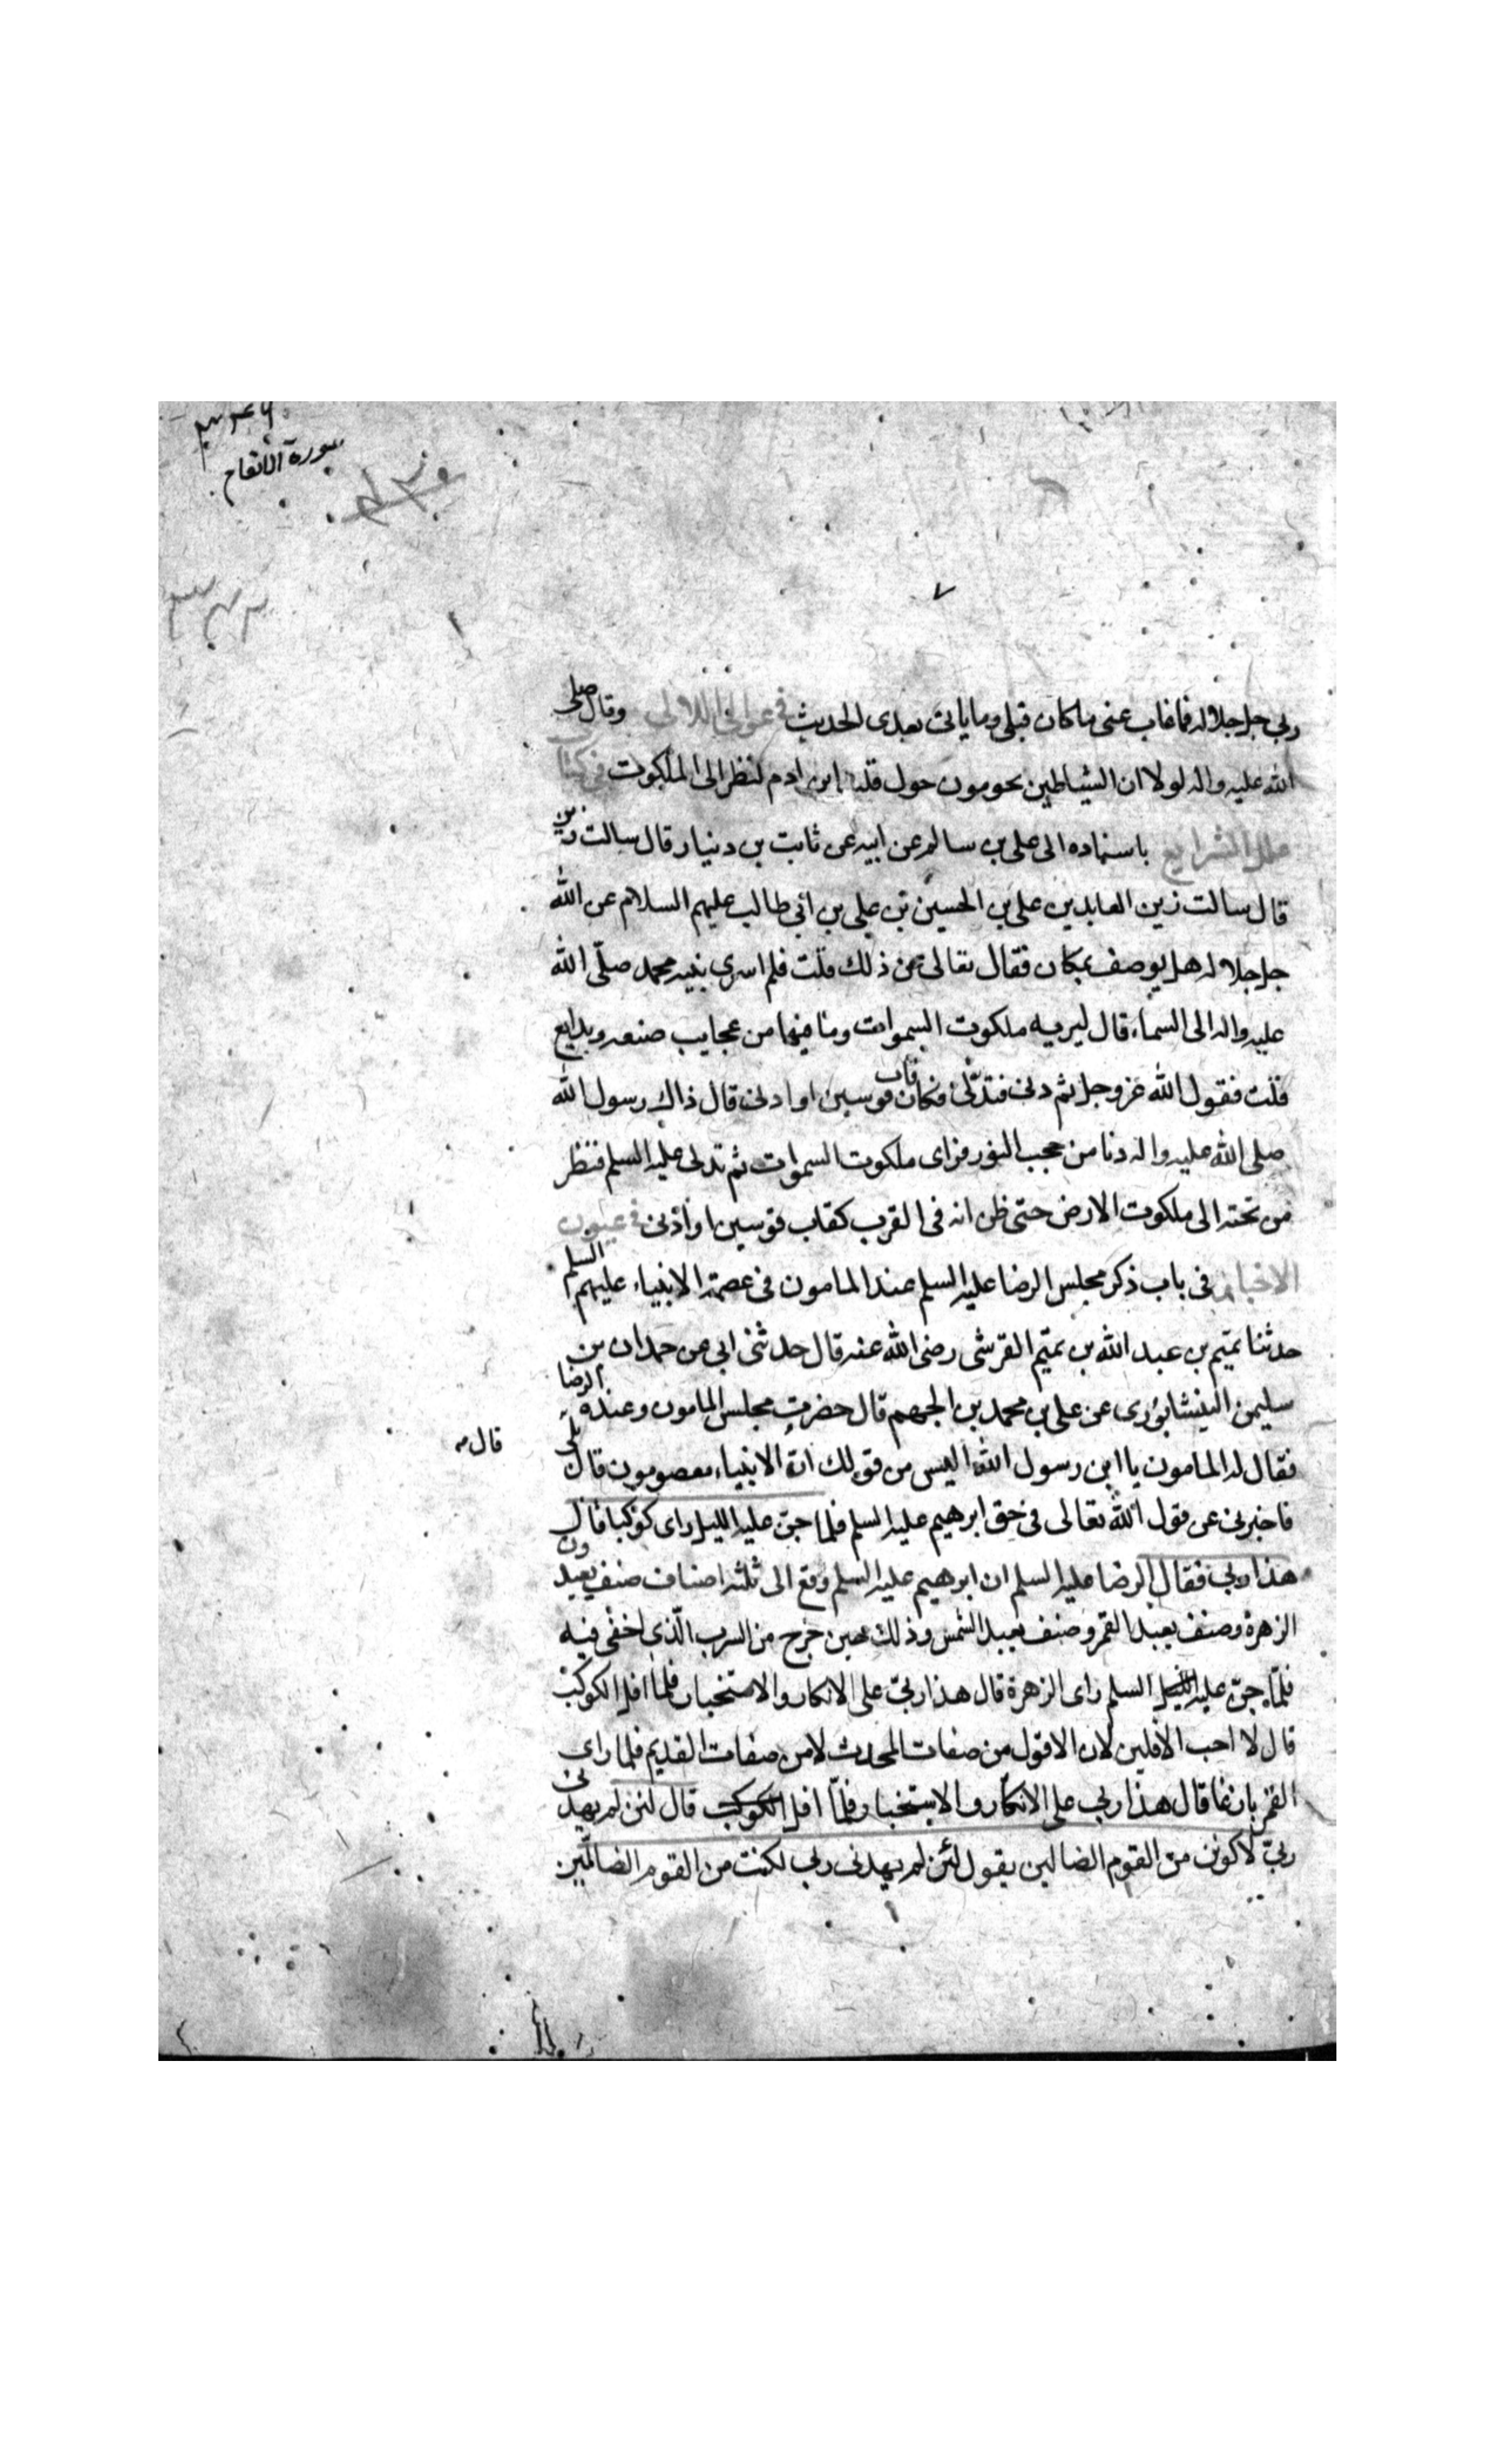 سورة الأنعام
٧
ربي جل جلاله فما غاب عني ما كان قبلي وما ياتي بعدي الحديث في عوالي اللالي وقال صلى
الله عليه واله لولا ان الشياطين يحومون حول قلب ابن ادم لنظر الى الملكوت في كتاب
علل الشرايع باسناده الى علي بن سالم عن ابيه عن ثابت بن دينار قال سالت زين
قال سالت زين العابدين علي بن الحسين بن علي بن ابي طالب عليهم السلام عن الله
جل جلاله هل يوصف بمكان فقال تعالى عن ذلك قلت فلم اسرى بنبيه محمد صلّى الله
عليه واله الى السماء قال ليريه ملكوت السموات وما فيها من عجايب صنعه وبدايع
قلت فقول الله عز وجل ثم دنى فتدلّى فكان قاب قوسين او ادنى قال ذاك رسول الله
صلى الله عليه واله دنا من حجب النور فراى ملكوت السموات ثم تدلى عليه السلم فنظر
من تحته الى ملكوت الارض حتى ظن انه في القرب كقاب قوسين او ادنى في عيون
الاخبار في باب ذكر مجلس الرضا عليه السلم عند المامون في عصمة الانبياء عليهم السلم
حدثنا تميم بن عبد الله بن تميم القرشي رضي الله عنه قال حدثني ابي عن حمدان بن
سليمن النيشابوري عن علي بن محمد بن الجهم قال حضرت مجلس المامون وعنده الرضا ع
فقال له المامون يا ابن رسول الله اليس من قولك انّ الانبياء معصومون قال بلى
قال
فاخبرني عن قول الله تعالى في حق ابرهيم عليه السلم فلما جنّ عليه الليل راى كوكبا قال
هذا ربي فقال الرضا عليه السلم ان ابرهيم عليه السلم وقع الى ثلثة اصناف صنف يعبدون
الزهرة وصنف يعبد القمر وصنف يعبد الشمس وذلك حين خرج من السرب الّذي اخفى فيه
فلمّا جنّ عليه الليل السلم راى الزهرة قال هذا ربيّ على الانكار والاستخبار فلما افل الكوكب
قال لا احب الافلين لان الافول من صفات المحدث لا من صفات القديم فلما راى
القمر بازغا قال هذا ربي على الانكار والاستخبار فلمّا افل الكوكب قال لئن لم يهدني
ربيّ لاكونن من القوم الضالين يقول لئن لم يهدني ربي لكنت من القوم الضالّين